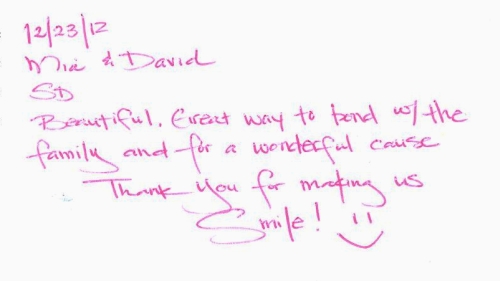 12/23/12
Mia & David
SD
Beautiful. Great way to bond w/ the
family and for a wonderful cause
Thank you for making us
Smile!